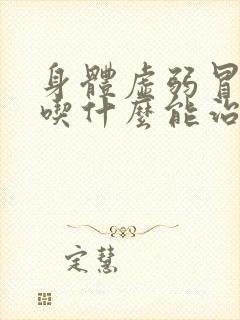 身體虛弱冒
喫什麼能治
定慧